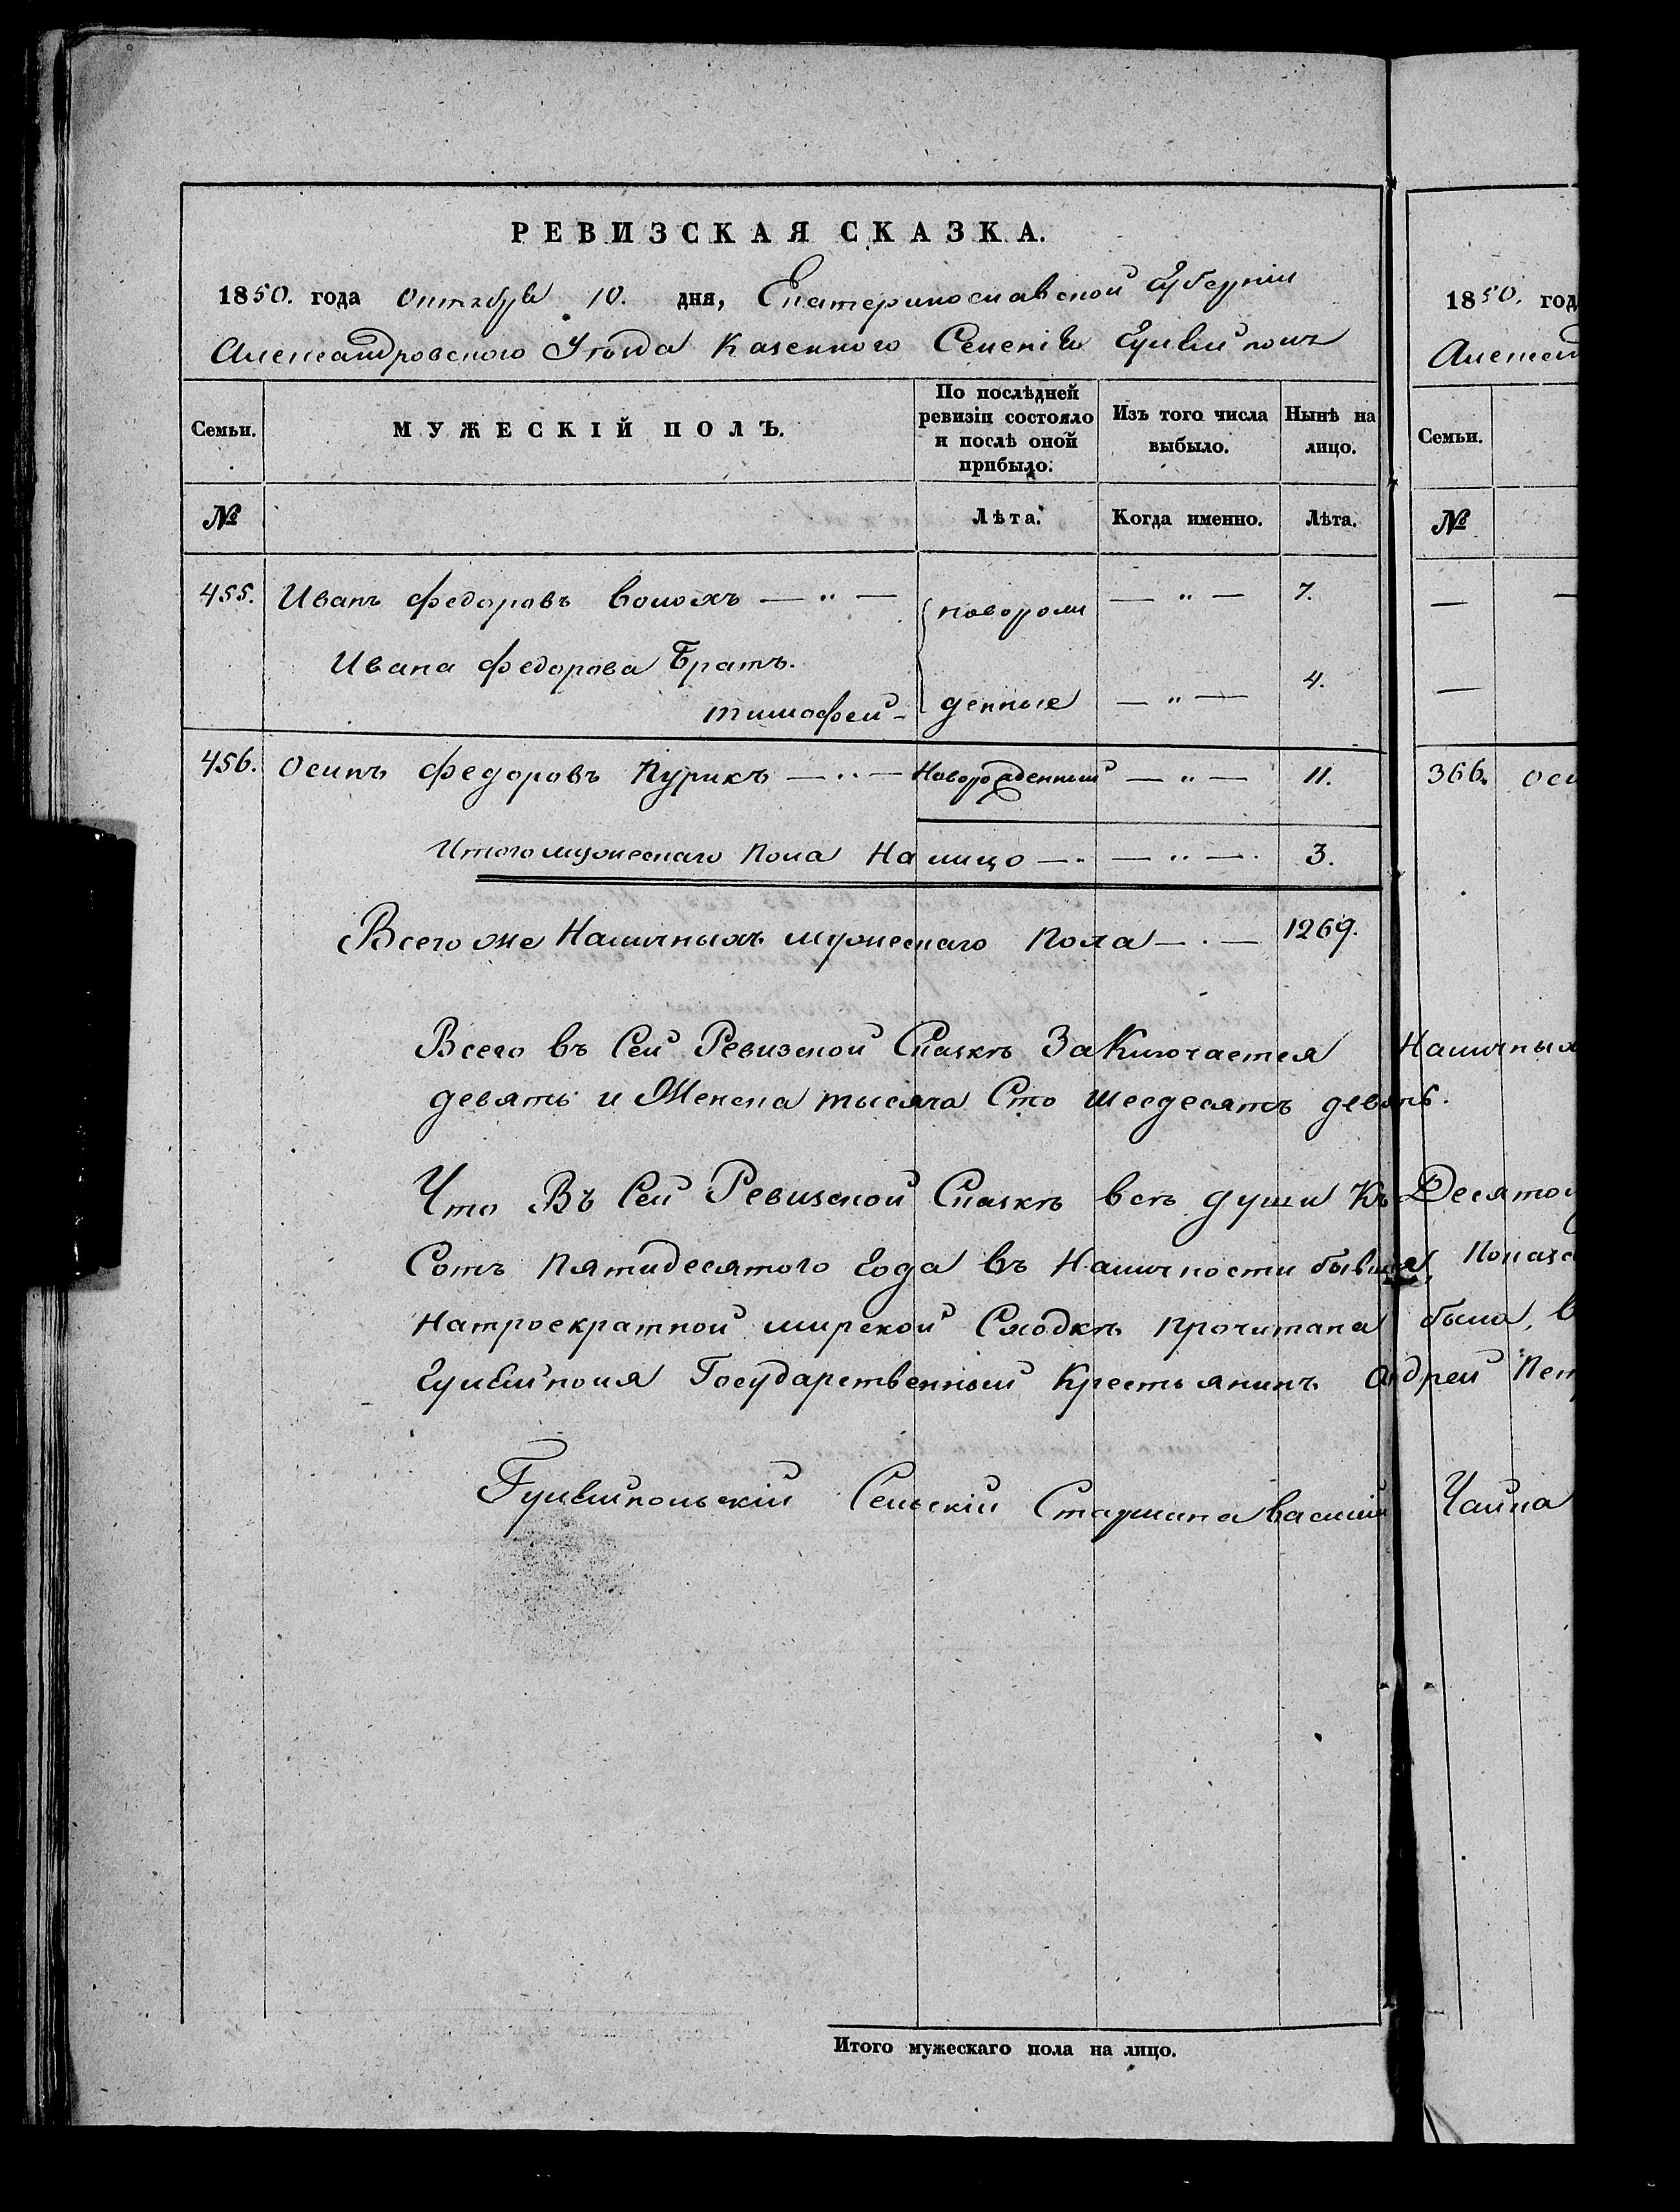 РЕВИЗСКАЯ СКАЗКА.
1850. года Октября 10. дня, Екатеринославской Губерніи
Александровского Уѣзда Казенного Селенія Гуляйполя
Семьи.
МУЖЕСКІЙ ПОЛЪ.
По послѣдней ревизіи состояло и послѣ оной прибыло.
Изъ того числа выбыло.
Нынѣ на лицо.
№
Лѣта.
Когда именно.
Лѣта.
455. Иванъ Федоровъ Волохъ — „ — новорож — „ — 7.
Ивана Федорова Братъ.
Тимофей — денные — „ — 4.
456. Осипъ Федоровъ Курикъ — „ — Новорожденный — „ — 11.
Итого мужескаго пола На лицо — „ — „ — 3.
Всего же Наличныхъ мужескаго Пола — „ — 1269.
Всего въ Сей Ревизской Сказкѣ Заключается Наличныхъ
девять и Женска тысяча Сто шесдесятъ девять.
Что Въ Сей Ревизской Сказкѣ всѣ души Къ Десятой
Сотъ пятидесятого Года въ Наличности бывшія, Показа
На троекратной мирской Сходкѣ прочитана была, в
Гуляйполя Государственный Крестьянинъ Андрей Пет
Гуляйпольскій Сельскій Старшина Василий Чайка
Итого мужескаго пола на лицо.
1850. год
Александ
Семьи.
№
366. Оси